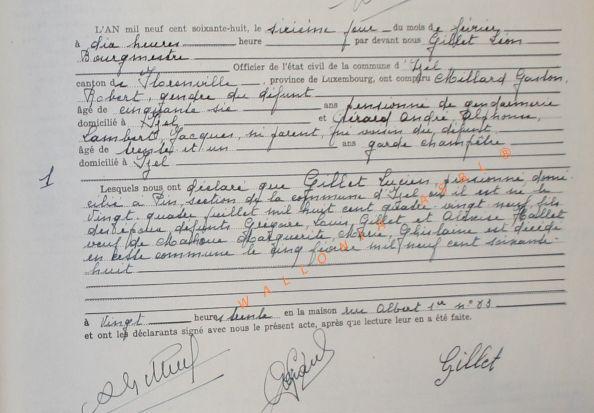 L'AN mil neuf cent soixante-huit, le sixième jour du mois de février
à dix heures heure par devant nous Gillet Léon
Bourgmestre
Officier de l'état civil de la commune d'Izel
canton de Florenville, province de Luxembourg, ont comparu Millard Gaston,
Robert, gendre du défunt
âgé de cinquante six ans pensionné de gendarmerie
domicilié à Izel et Gérard André, Alphonse,
Lambert, Jacques, ni parent, ni voisin du défunt,
âgé de trente et un ans garde champêtre
domicilié à Izel
1
Lesquels nous ont déclaré que Gillet Lucien, pensionné, domi-
cilié à Pin, section de la commune d'Izel où il est né le
vingt-quatre juillet mil huit cent quatre-vingt neuf fils
des époux défunts Grégoire, Louis Gillet et Hallet
veuf de Marguerite, Marie, Ghislaine est décédé
en cette commune le cinq février mil neuf cent soixante-
huit
à vingt heures trente en la maison rue Albert 1er n° 83
et ont les déclarants signé avec nous le présent acte, après que lecture leur en a été faite.
Gillet
WALLONIA ASBL ®